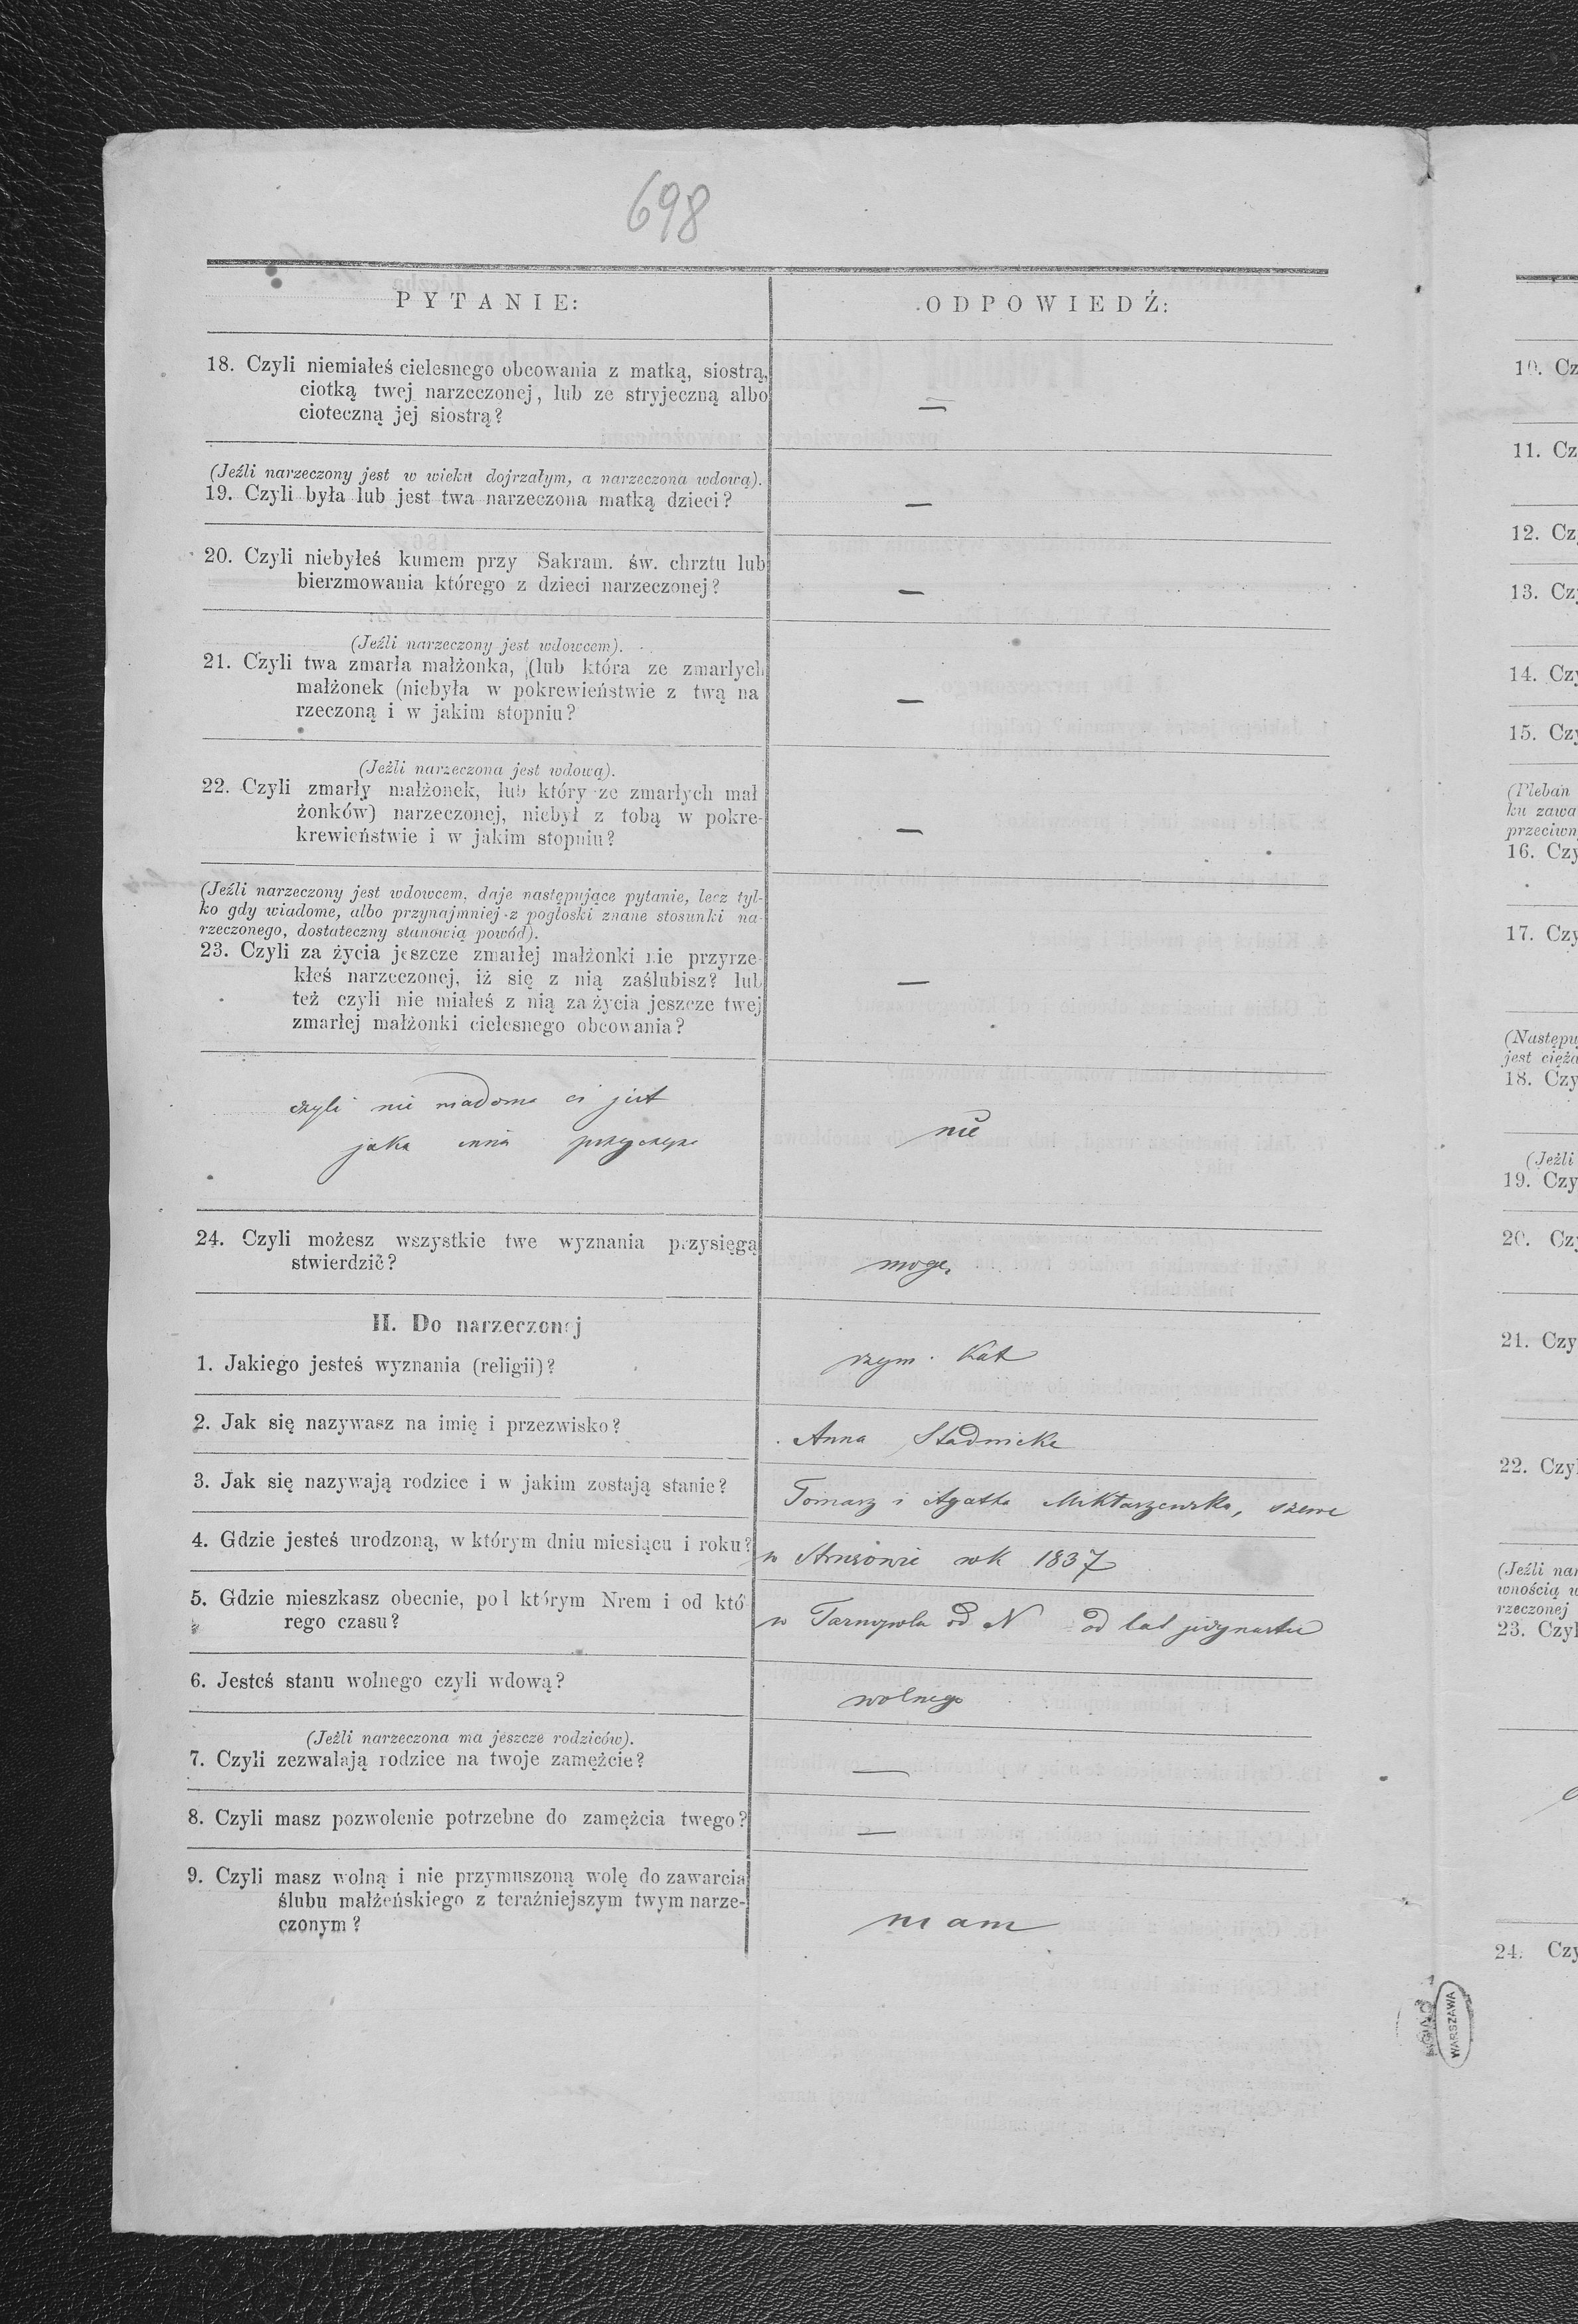 698
PYTANIE:
ODPOWIEDŹ:
18. Czyli niemiałeś cielesnego obcowania z matką, siostrą,
ciotką twej narzeczonej, lub ze stryjeczną albo
cioteczną jej siostrą?
—
(Jeźli narzeczony jest w wieku dojrzałym, a narzeczona wdową).
19. Czyli była lub jest twa narzeczona matką dzieci?
—
20. Czyli niebyłeś kumem przy Sakram. św. chrztu lub
bierzmowania którego z dzieci narzeczonej?
—
(Jeźli narzeczony jest wdowcem).
21. Czyli twa zmarła małżonka, (lub która ze zmarłych
małżonek (niebyła w pokrewieństwie z twą na
rzeczoną i w jakim stopniu?
—
(Jeźli narzeczona jest wdową).
22. Czyli zmarły małżonek, lub który ze zmarłych mał
żonków) narzeczonej, niebył z tobą w pokre-
krewieństwie i w jakim stopniu?
—
(Jeźli narzeczony jest wdowcem, daje następujące pytanie, lecz tyl-
ko gdy wiadome, albo przynajmniej z pogłoski znane stosunki na-
rzeczonego, dostateczny stanowią powód).
23. Czyli za życia jeszcze zmarłej małżonki nie przyrze-
kłeś narzeczonej, iż się z nią zaślubisz? lub
też czyli nie miałeś z nią za życia jeszcze twej
zmarłej małżonki cielesnego obcowania?
—
czyli nie wiadoma ci jest
jaka inna
nie
24. Czyli możesz wszystkie twe wyznania przysięgą
stwierdzić?
mogę
II. Do narzeczonej
1. Jakiego jesteś wyznania (religii)?
rzym. Kat
2. Jak się nazywasz na imię i przezwisko?
Anna Stadnicka
3. Jak się nazywają rodzice i w jakim zostają stanie?
Tomasz i Agatha
4. Gdzie jesteś urodzoną, w którym dniu miesiącu i roku?
w Strusowie rok 1837
5. Gdzie mieszkasz obecnie, pod którym Nrem i od któ
rego czasu?
w Tarnopolu od N od lat
6. Jesteś stanu wolnego czyli wdową?
wolnego
(Jeźli narzeczona ma jeszcze rodziców).
7. Czyli zezwalają rodzice na twoje zamężcie?
—
8. Czyli masz pozwolenie potrzebne do zamężcia twego?
—
9. Czyli masz wolną i nie przymuszoną wolę do zawarcia
ślubu małżeńskiego z teraźniejszym twym narze-
czonym?
mam
10. Cz
11. Cz
12. Cz
13. Cz
14. Czy
15. Czy
(Pleban
ku zawa
przeciwn
16. Czy
17. Czy
(Następu
jest cięża
18. Czy
(Jeźli
19. Czy
20. Czy
21. Czy
22. Czyl
(Jeźli nar
wnością w
rzeczonej
23. Czyl
24. Czy
AGAD
WARSZAWA